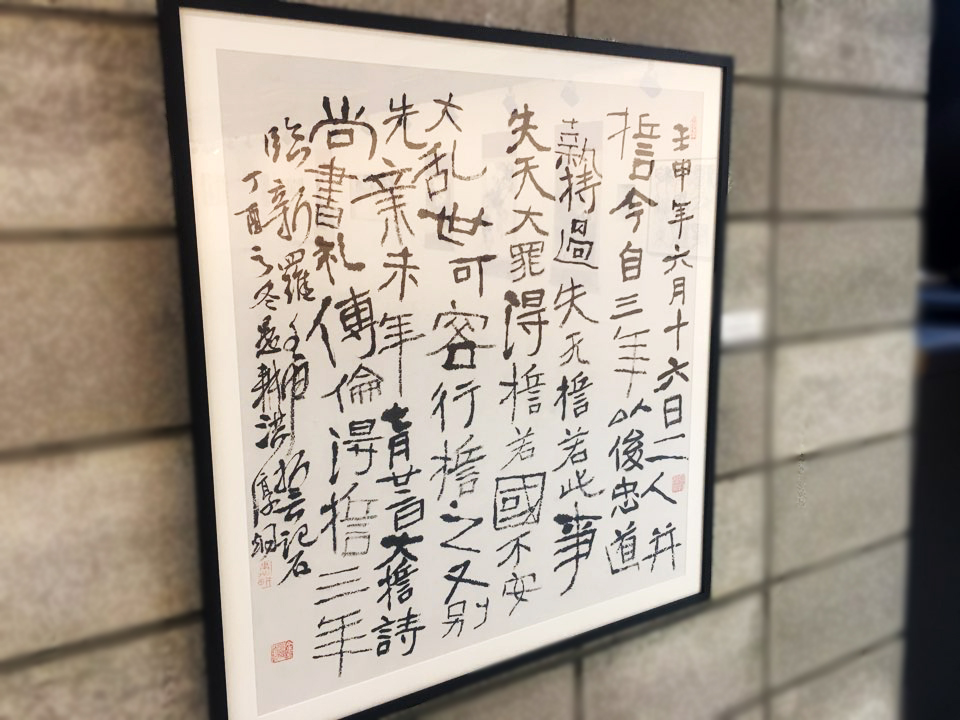 壬申年六月十六日二人幷
誓今自三年以後忠道
執持過失无誓若此事
失天大罪得誓若國不安
大乱世可容行誓之又別
先辛未年七月廿二日大誓詩
尚書礼傳倫得誓三年
臨新羅壬申誓記石
丁酉之冬